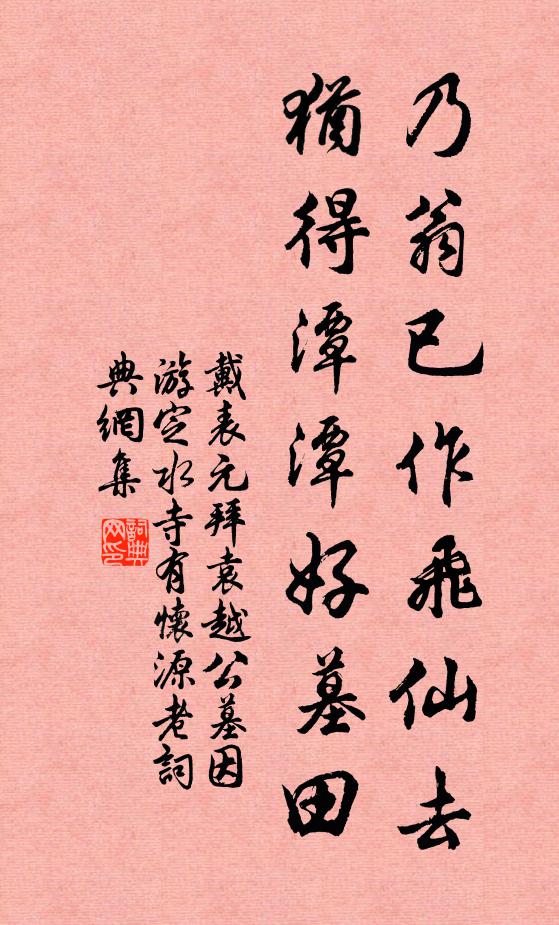 乃翁已作飛仙去
猶得潭潭好墓田
戴表元拜袁越公墓因
游定水寺有懷源老詞
典網集
詞典網印